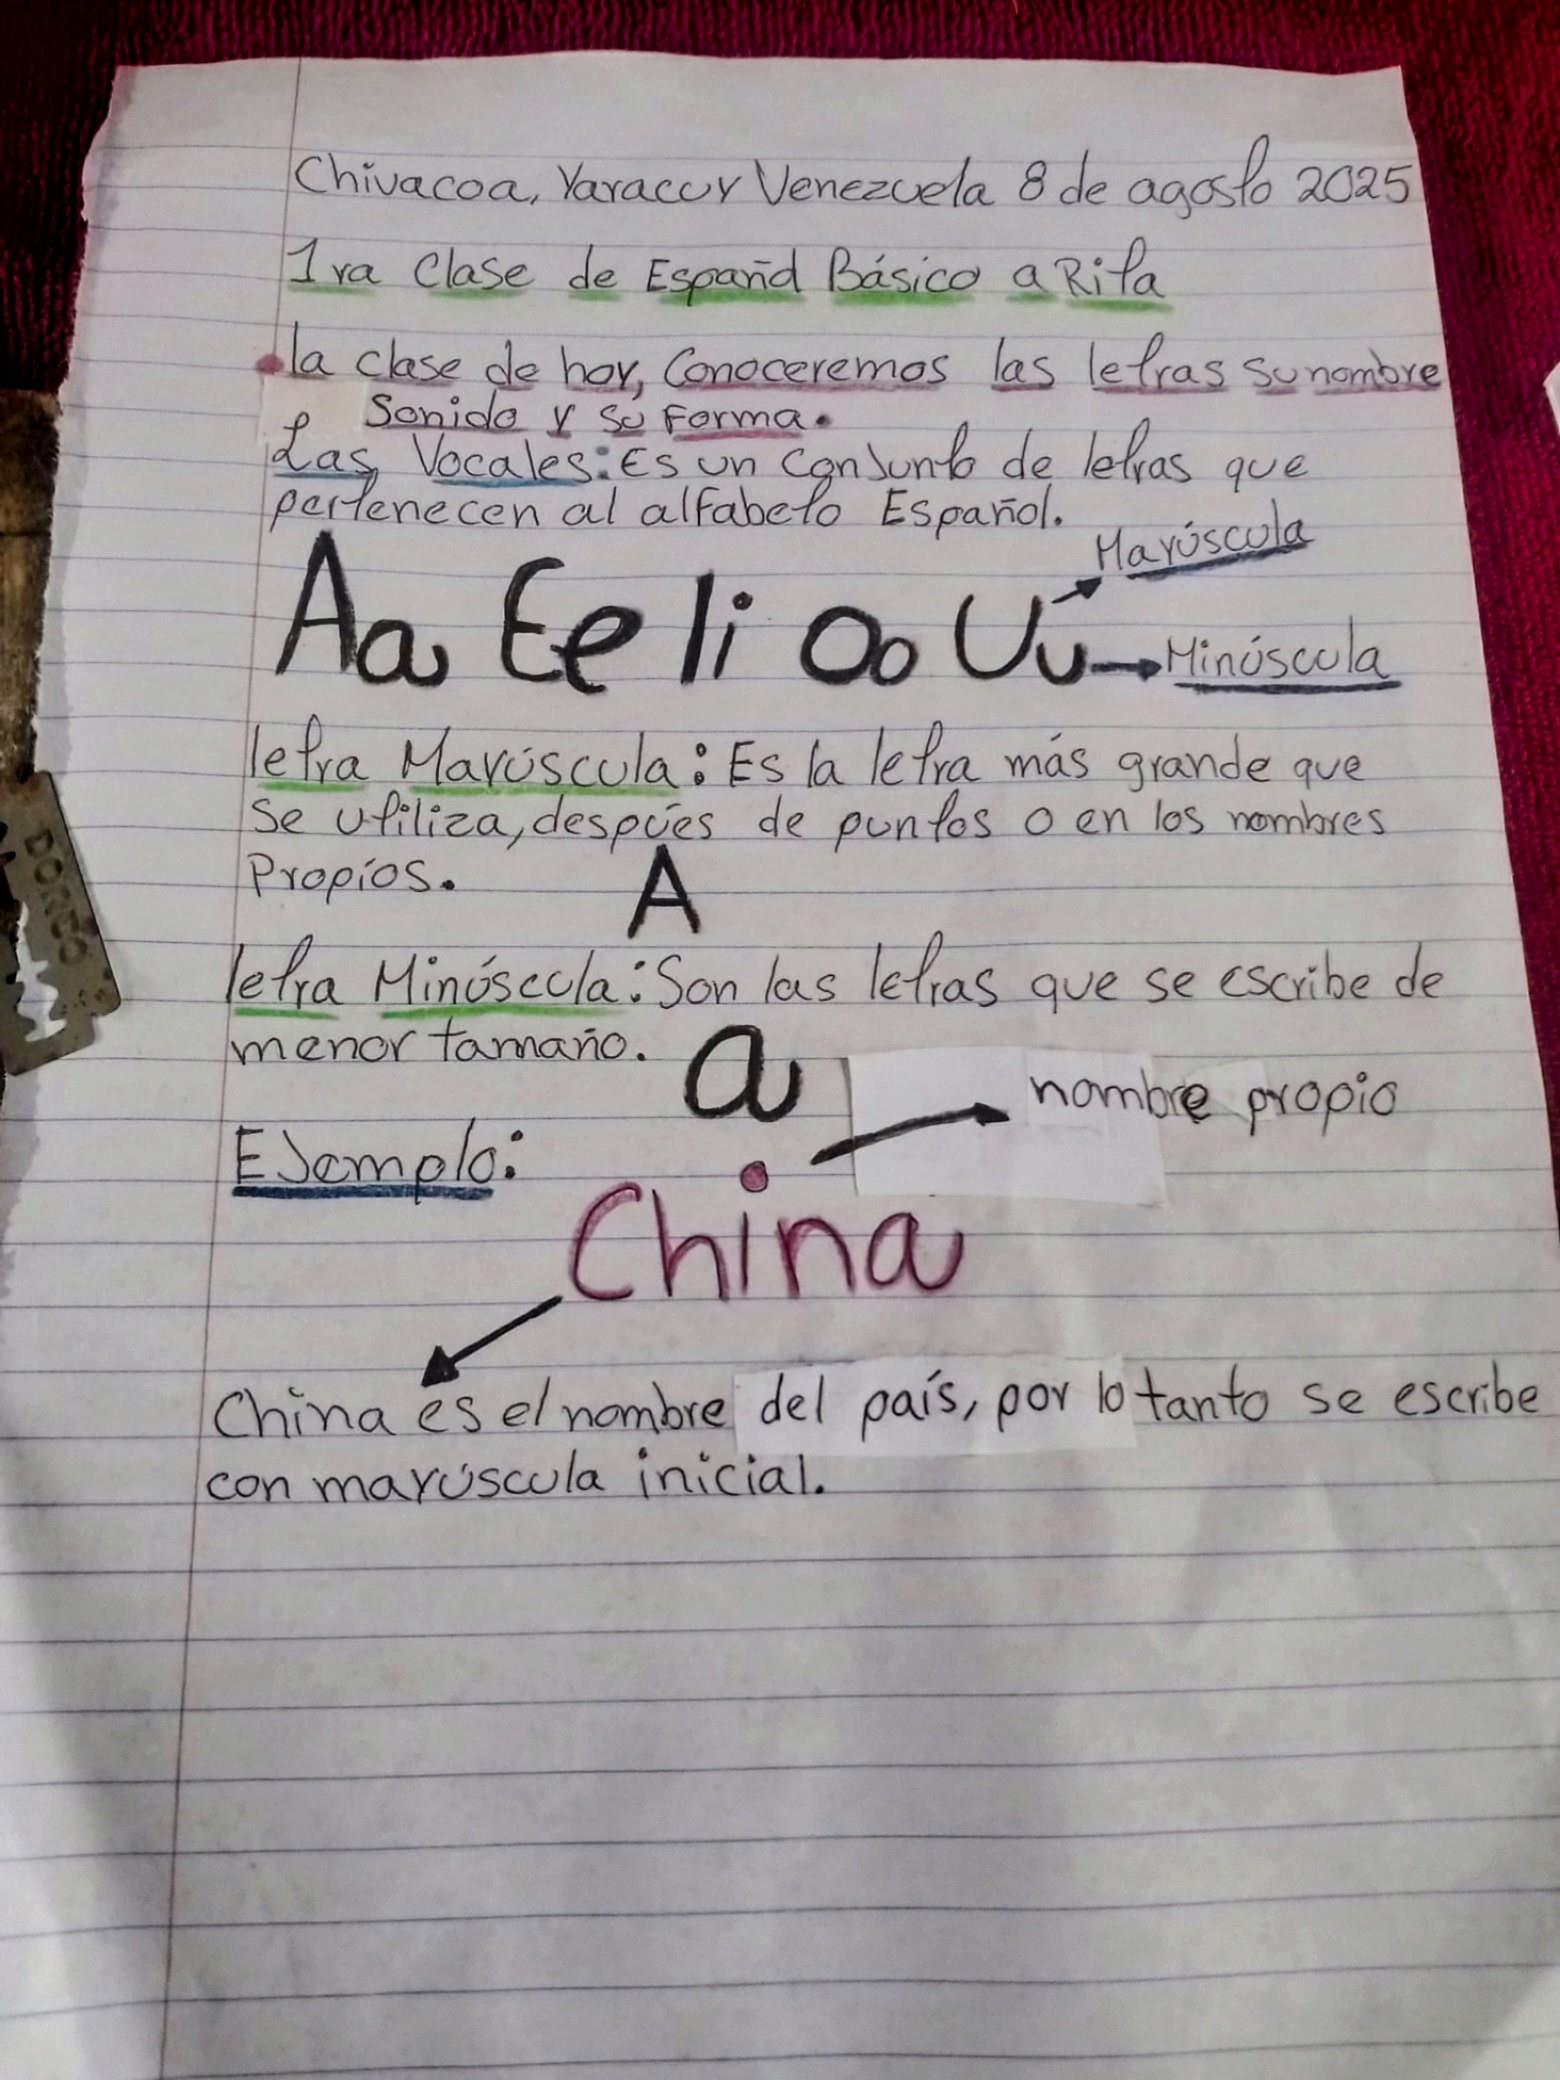 Chivacoa, Yaracuy Venezuela 8 de agosto 2025
1ra Clase de Español Básico a Rita
la clase de hoy, Conoceremos las letras su nombre
Sonido y su Forma.
Las Vocales: Es un conjunto de letras que
pertenecen al alfabeto Español.
Mayúscula
Aa Ee Ii Oo Uu
Minúscula
letra Mayúscula: Es la letra más grande que
se utiliza, despúes de puntos o en los nombres
Propios.
A
letra Minúscula: Son las letras que se escribe de
menor tamaño.
a
nombre propio
Ejemplo:
China
China es el nombre del país, por lo tanto se escribe
con mayúscula inicial.
DORCO